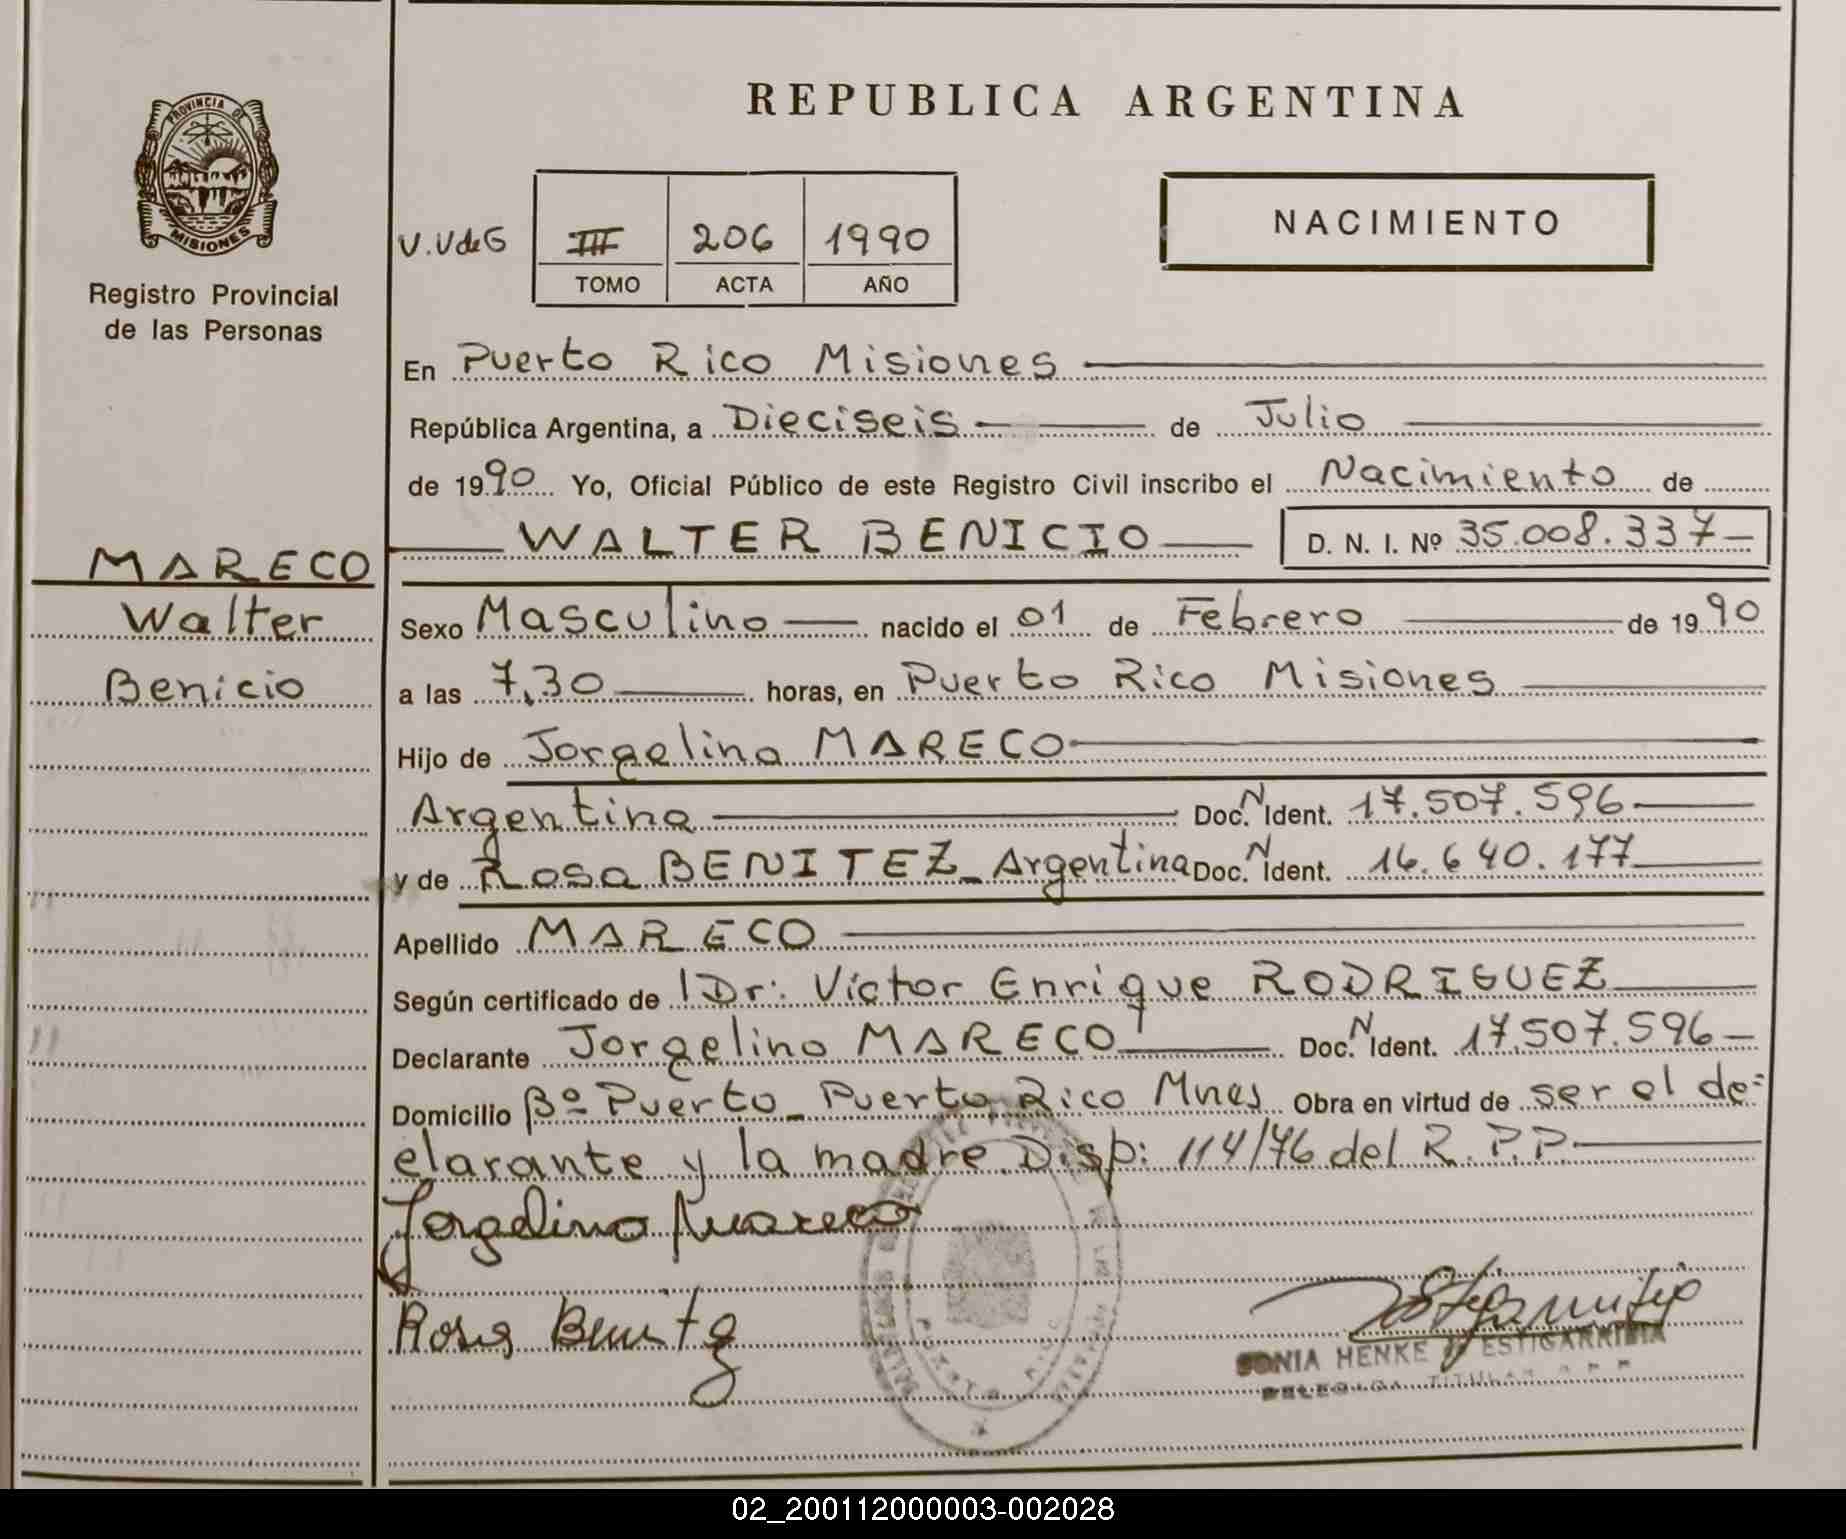 PROVINCIA DE
MISIONES
Registro Provincial
de las Personas
MARECO
Walter
Benicio
REPUBLICA ARGENTINA
V.VdeG III 206 1990
TOMO ACTA AÑO
NACIMIENTO
En Puerto Rico Misiones
República Argentina, a Dieciseis de Julio
de 1990 Yo, Oficial Público de este Registro Civil inscribo el Nacimiento de
WALTER BENICIO D. N. I. Nº 35.008.337
Sexo Masculino nacido el 01 de Febrero de 1990
a las 7,30 horas, en Puerto Rico Misiones
Hijo de Jorgelino MARECO
Argentina Doc. N Ident. 17.507.596
y de Rosa BENITEZ_Argentina Doc. N Ident. 16.640.177
Apellido MARECO
Según certificado de Dr: Víctor Enrique RODRIGUEZ
Declarante Jorgelino MARECO Doc. N Ident. 17.507.596
Domicilio Bº Puerto_Puerto Rico Mnes Obra en virtud de ser el de=
clarante y la madre. Disp: 114/76 del R.P.P.
Jorgelino Mareco
Rosa Benitez
SONIA HENKE ESTIGARRIBIA
DELEGADA TITULAR
PUERTO RICO
02_200112000003-002028